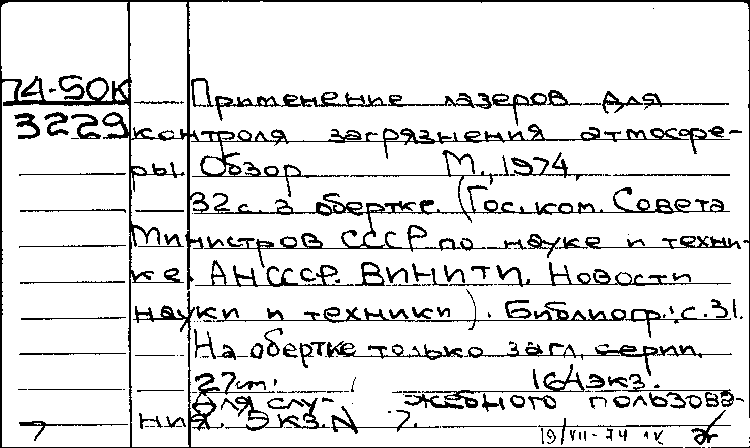 74-50К
3229
Применение лазеров для
контроля загрязнения атмосфе-
ры. Обзор. М., 1974,
32 с. в обертке. (Гос. ком. Совета
Министров СССР по науке и техни-
ке. АН СССР. ВИНИТИ. Новости
науки и техники). Библиогр.: с. 31.
На обертке только загл. серии.
27 см. 164 экз.
Для служебного пользова-
ния. Экз. N 7.
7
19/VII-74